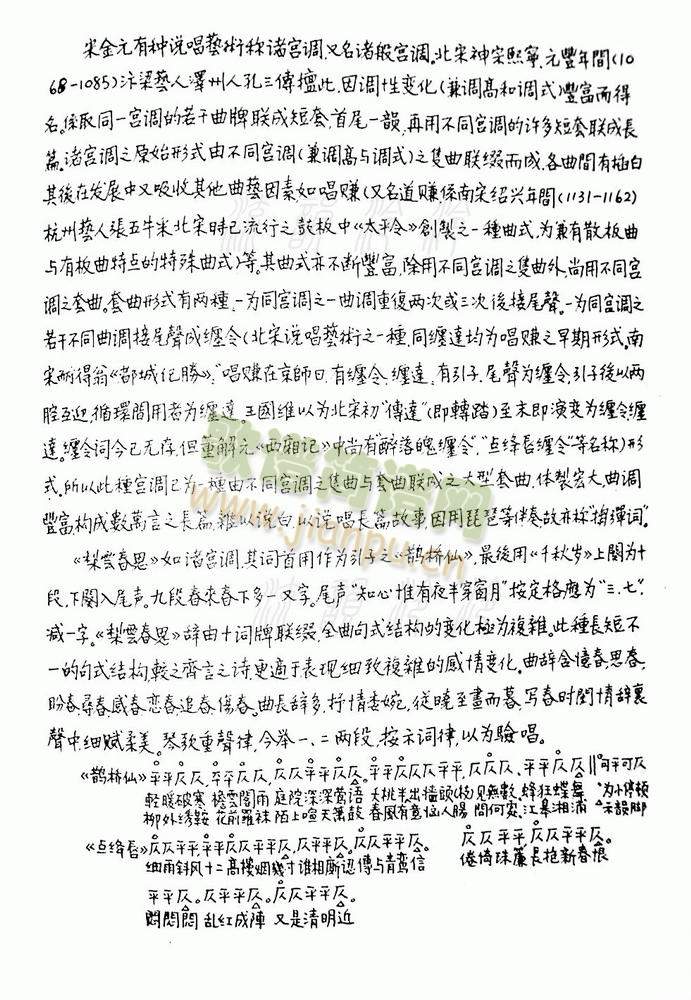 宋金元有种说唱藝術称诸宫调,又名诸般宫调。北宋神宗熙寧、元豐年間(10
68-1085)汴梁藝人澤州人孔三傳擅此,因调性变化(兼调高和调式)豐富而得
名。係取同一宫调的若干曲牌联成短套,首尾一韻,再用不同宫调的许多短套联成長
篇。诸宫调之原始形式由不同宫调(兼调高与调式)之隻曲联缀而成,各曲間有插白
其後在发展中又吸收其他曲藝因素,如唱赚(又名道赚係南宋绍兴年間(1131-1162)
杭州藝人張五牛采北宋時已流行之鼓板中《太平令》創製之一種曲式,为兼有散板曲
与有板曲特点的特殊曲式)等。其曲式亦不断豐富,除用不同宫调之隻曲外,尚用不同宫
调之套曲。套曲形式有两種,一为同宫调之一曲调重復两次或三次後接尾聲。一为同宫调之
若干不同曲调接尾聲成缠令(北宋说唱藝術之一種,同缠達均为唱赚之早期形式。南
宋耐得翁《都城纪勝》:"唱赚在京師日,有缠令、缠達,有引子、尾聲为缠令,引子後以两
腔互迎,循環間用者为缠達。王國维以为北宋初"傳達"(即轉踏)至末即演变为缠令缠
達。缠令词今已无存,但董解元《西厢记》中尚有"醉落魄缠令","点绛唇缠令"等名称)形
式。所以此種宫调已为一種由不同宫调之隻曲与套曲联成之大型套曲,体製宏大,曲调
豐富,構成數萬言之長篇,雜以说白,以说唱長篇故事,因用琵琶等伴奏故亦称"搊彈词"。
《梨雲春思》如诸宫调,其词首用作为引子之《鹊桥仙》,最後用《千秋岁》上闋为十
段,下闋入尾声。九段春來春下多一又字。尾声"知心惟有夜半穿窗月"按定格應为"三、七",
减一字。《梨雲春思》辞由十词牌联缀,全曲句式结构的变化極为複雜。此種長短不
一的句式结构,較之齊言之诗,更適于表现细致複雜的感情变化。曲辞含憶春、思春、
盼春、尋春、感春、恋春、追春、傷春。曲長辞多,抒情委婉,従曉至晝而暮,写春时閨情,辞裏
聲中,细腻柔美。琴歌重聲律,今举一、二两段,按示词律,以为驗唱。
《鹊桥仙》平平仄仄、平平仄仄,仄仄平平仄仄。平平仄仄仄平平,仄仄仄、平平仄仄‖可平可仄
輕暖破寒 檐雲閣雨 庭院深深莺语 夭桃半出墙頭(杪)见無數、蜂狂蝶舞 为小停頓
柳外绣鞍 花前羅袜 陌上喧天箫鼓 春風有意恼人腸 問何處、江皋湘浦 示韻脚
《点绛唇》仄仄平平,平平仄仄平平仄。仄平平仄,仄仄平平仄。 仄仄平平,仄仄平平仄。
细雨斜风十二高樓烟幾寸谁相厮認傳与青鸾信 倦倚珠簾長抱新春恨
平平仄。仄平平仄。仄仄平平仄。
悶悶悶 乱红成陣 又是清明近